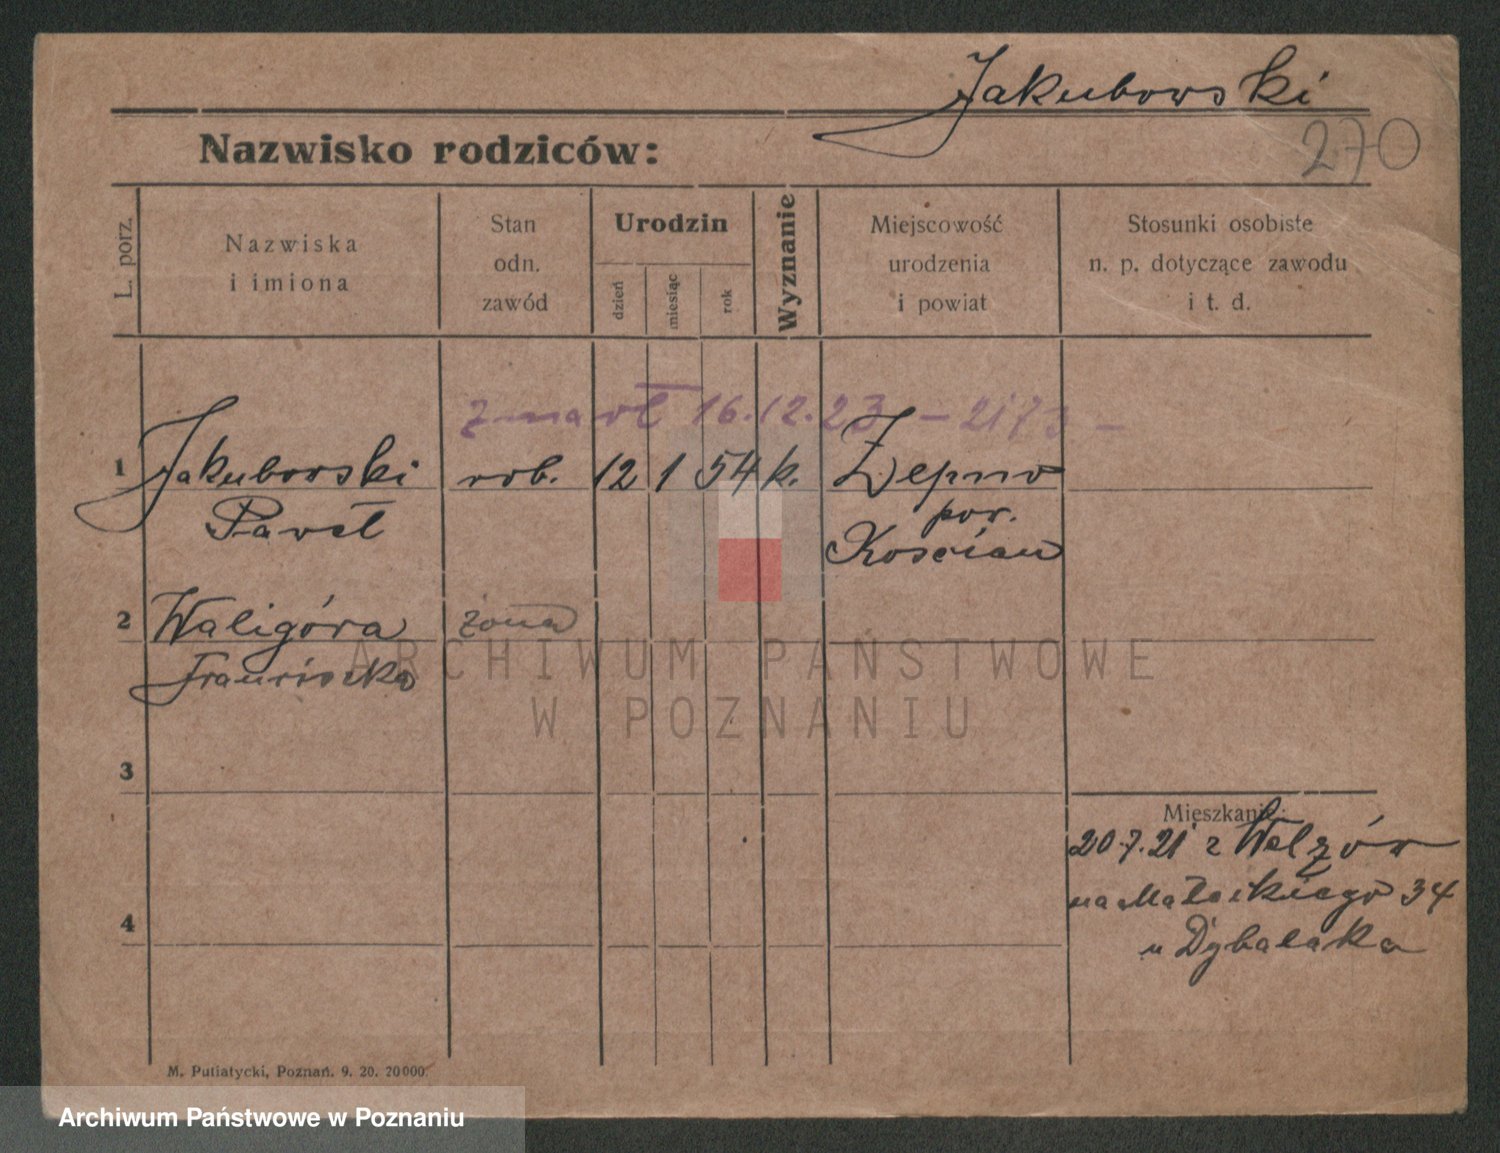 Jakubowski
270
Nazwisko rodziców:
L. porz.
Nazwiska
i imiona
Stan
odn.
zawód
Urodzin
dzień
miesiąc
rok
Wyznanie
Miejscowość
urodzenia
i powiat
Stosunki osobiste
n. p. dotyczące zawodu
i t. d.
zmarł 16.12.23 – 2173 –
1 Jakubowski rob. 12 1 54 k.
Paweł pow.
Kościan
2 Waligóra żona
Franciszka
3
Mieszkanie:
20.7.21 z
na Małeckiego 34
4
u Dybalaka
M. Putiatycki, Poznań. 9. 20. 20000.
ARCHIWUM PAŃSTWOWE
W POZNANIU
Archiwum Państwowe w Poznaniu